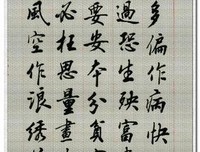 多偏作病快
過恐生殃富
要安本分貧
必枉思量畫
風空作浪綉